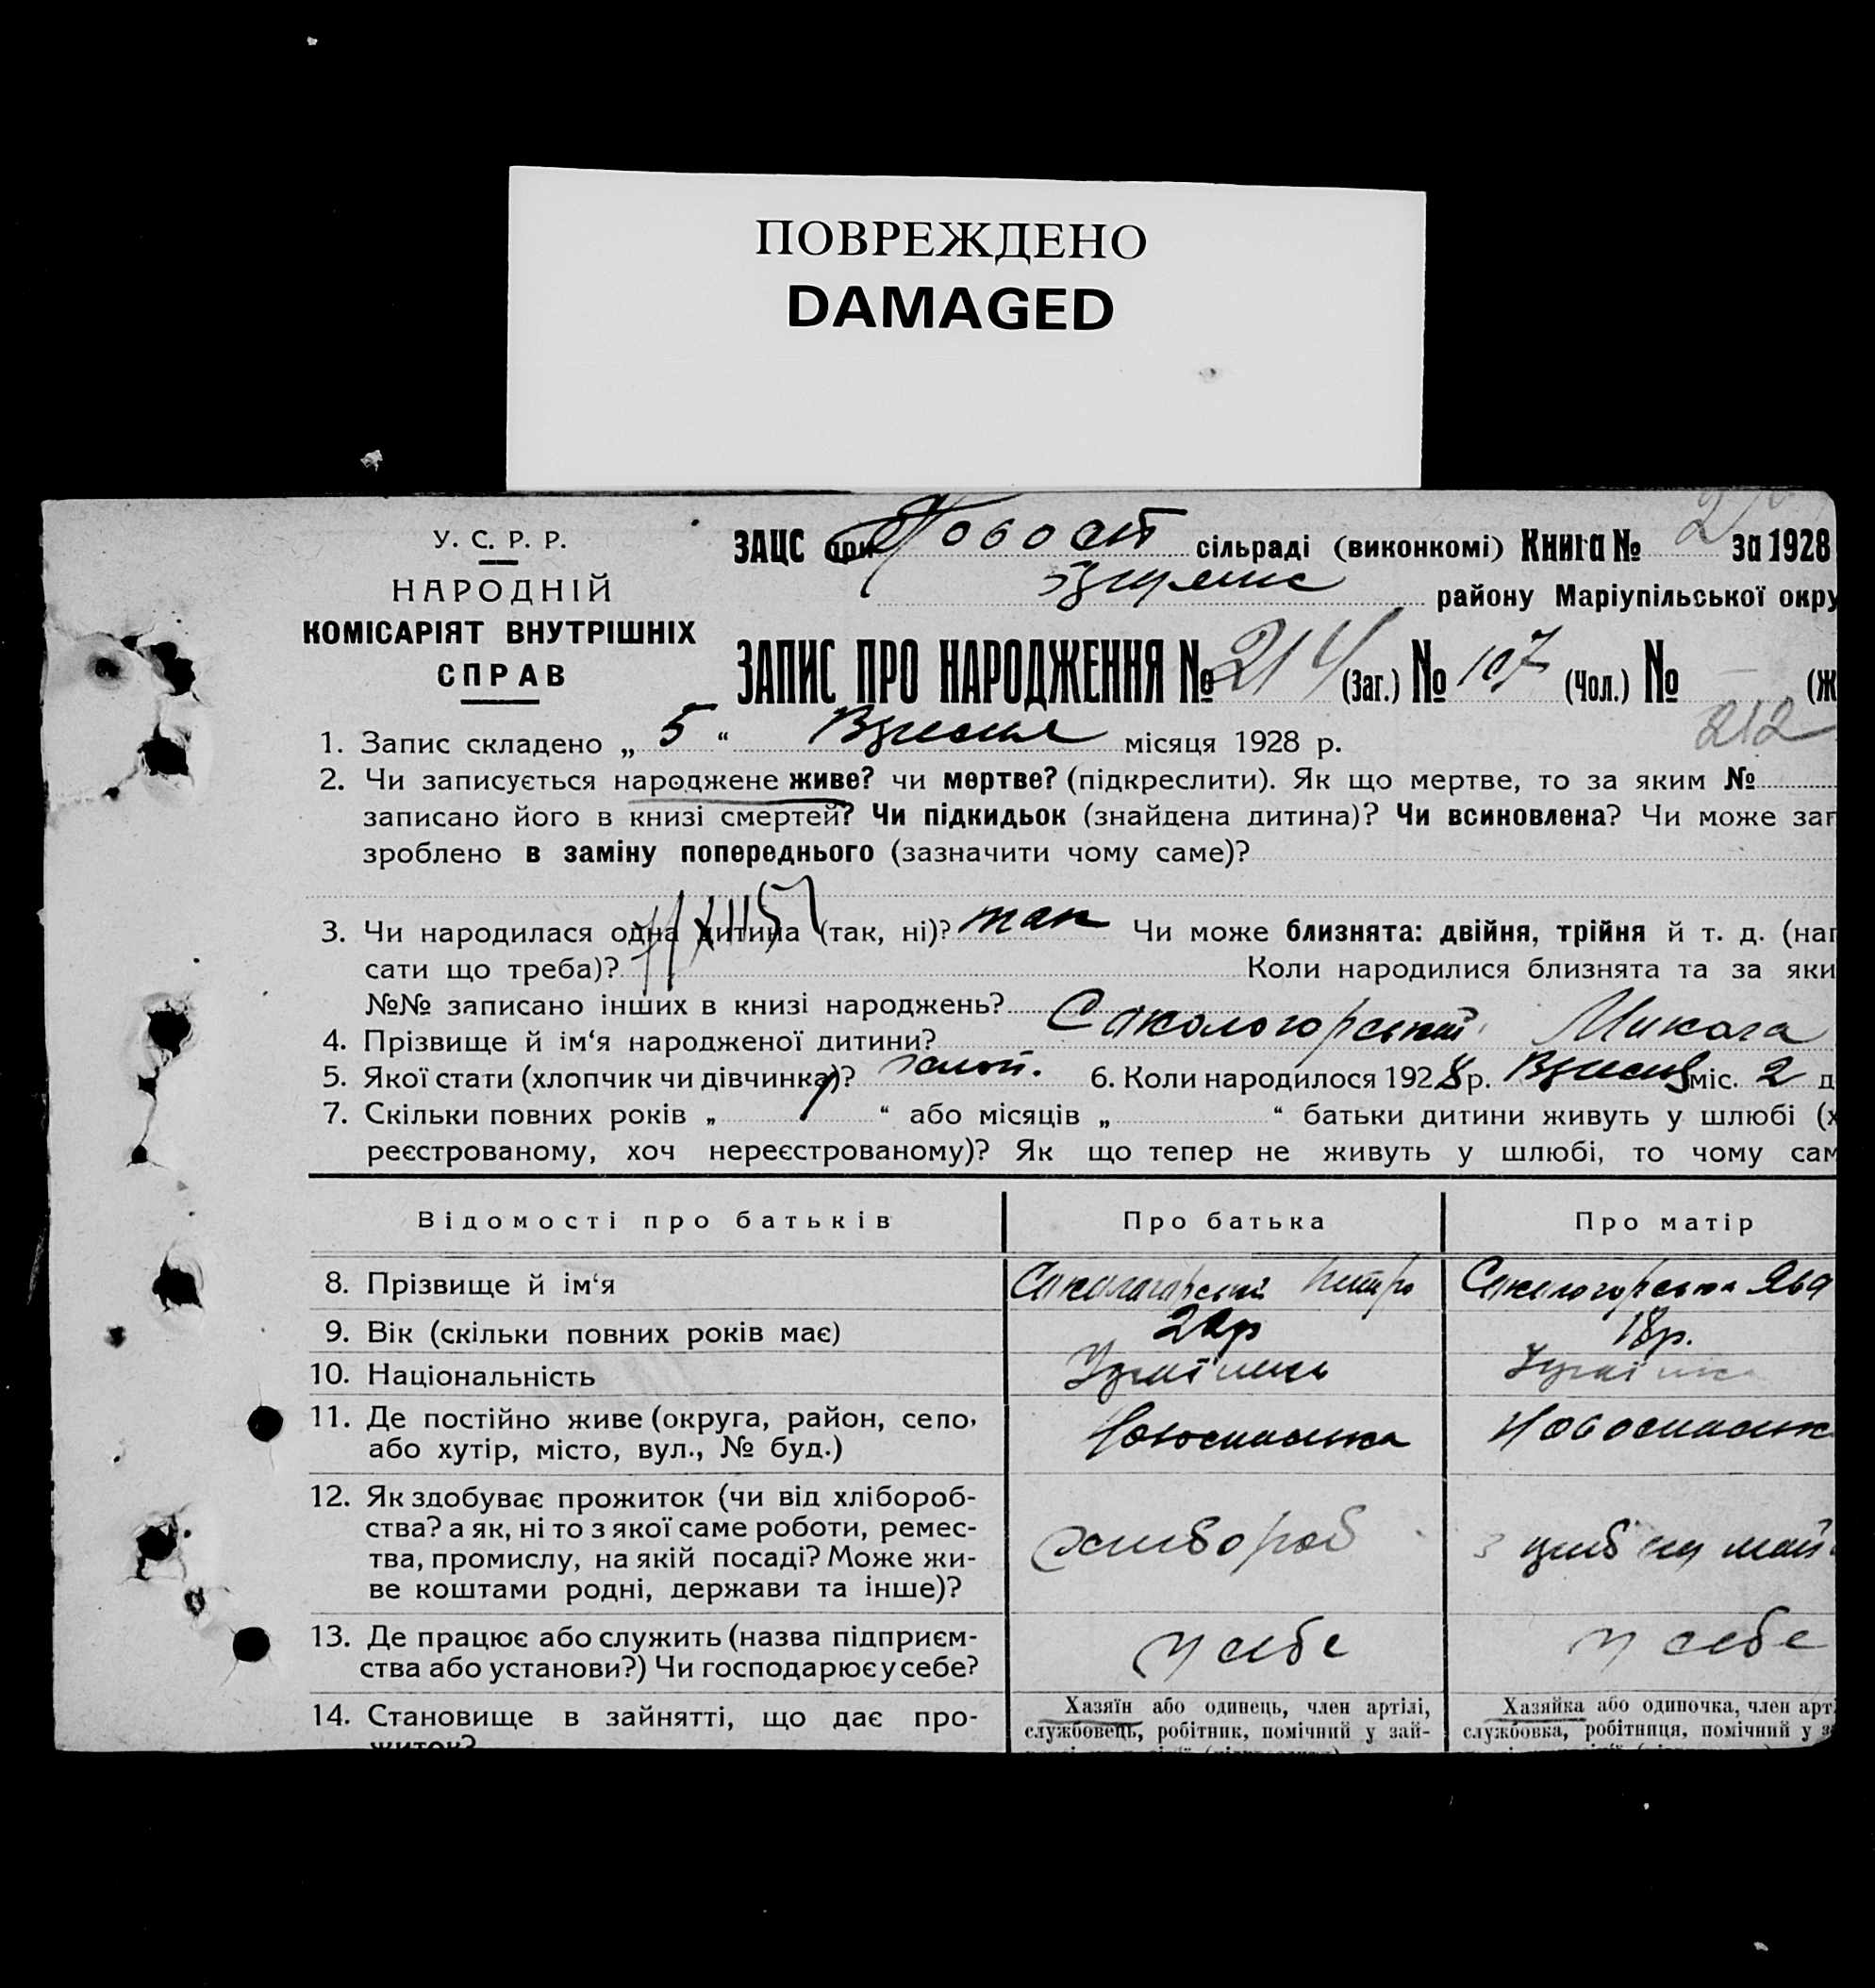 ПОВРЕЖДЕНО
DAMAGED
У. С. Р. Р.
НАРОДНІЙ
КОМІСАРІЯТ ВНУТРІШНІХ
СПРАВ
ЗАЦС при сільраді (виконкомі) Книга № 2 за 1928
району Маріупільської окру
ЗАПИС ПРО НАРОДЖЕННЯ № 214 (Заг.) № 107 (Чол.) № — (Ж
212
1. Запис складено „ 5 “ Вересня місяця 1928 р.
2. Чи записується народжене живе? чи мертве? (підкреслити). Як що мертве, то за яким №
записано його в книзі смертей? Чи підкидьок (знайдена дитина)? Чи всиновлена? Чи може заг
зроблено в заміну попереднього (зазначити чому саме)?
3. Чи народилася одна дитина (так, ні)? так Чи може близнята: двійня, трійня й т. д. (наг
сати що треба)? Коли народилися близнята та за яки
№№ записано інших в книзі народжень?
4. Прізвище й ім‘я народженої дитини? Сокологорський Микола
5. Якої стати (хлопчик чи дівчинка)? хлоп. 6. Коли народилося 1928 р. Вересня міс. 2 д
7. Скільки повних років „ “ або місяців „ “ батьки дитини живуть у шлюбі (х
реєстрованому, хоч нереєстрованому)? Як що тепер не живуть у шлюбі, то чому сам
Відомості про батьків Про батька Про матір
8. Прізвище й ім‘я Сокологорський Петро Сокологорська
9. Вік (скільки повних років має) 18р.
10. Національність Українець Українка
11. Де постійно живе (округа, район, село, або хутір, місто, вул., № буд.) Новоспасівка
12. Як здобуває прожиток (чи від хлібороб-
ства? а як, ні то з якої саме роботи, ремес-
тва, промислу, на якій посаді? Може жи-
ве коштами родні, держави та інше)? хлібороб
13. Де працює або служить (назва підприєм-
ства або установи?) Чи господарює у себе? у себе у себе
14. Становище в зайнятті, що дає про-
житок?
Хазяїн або одинець, член артілі,
службовець, робітник, помічний у зай-
Хазяйка або одиночка, член арт
службовка, робітниця, помічний у з